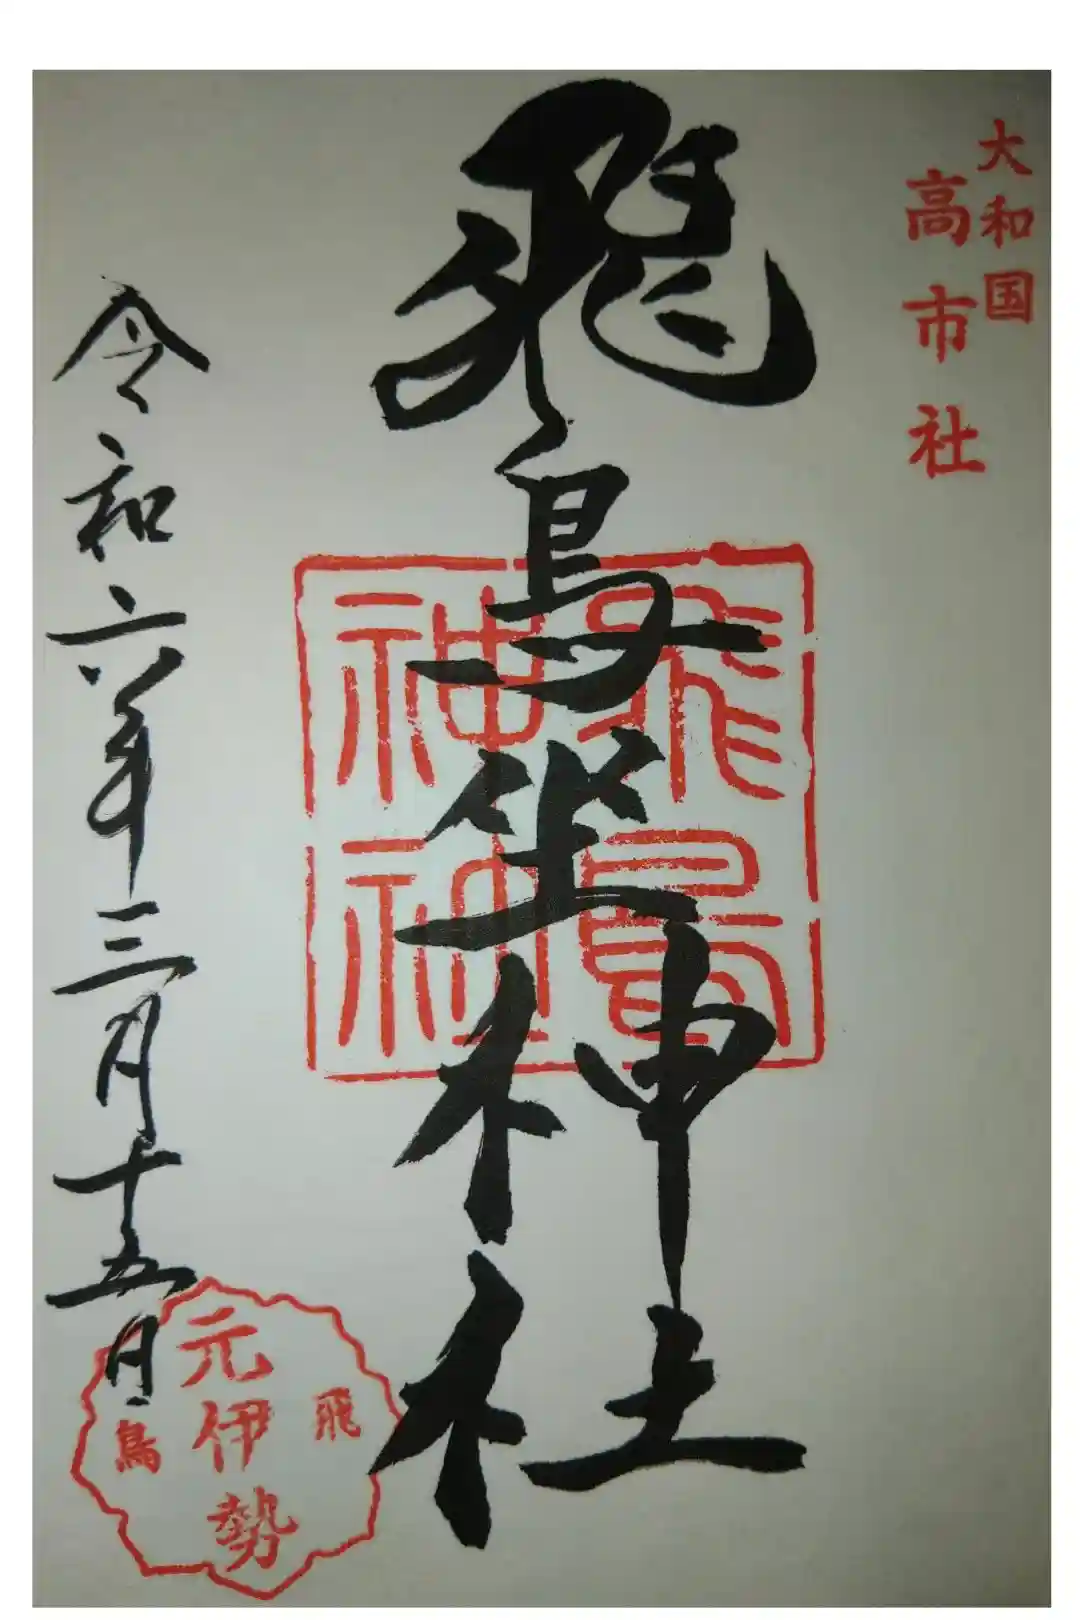 大和国
高市社
飛鳥坐神社
飛鳥
神社
令和六年三月十五日
飛鳥
元伊勢